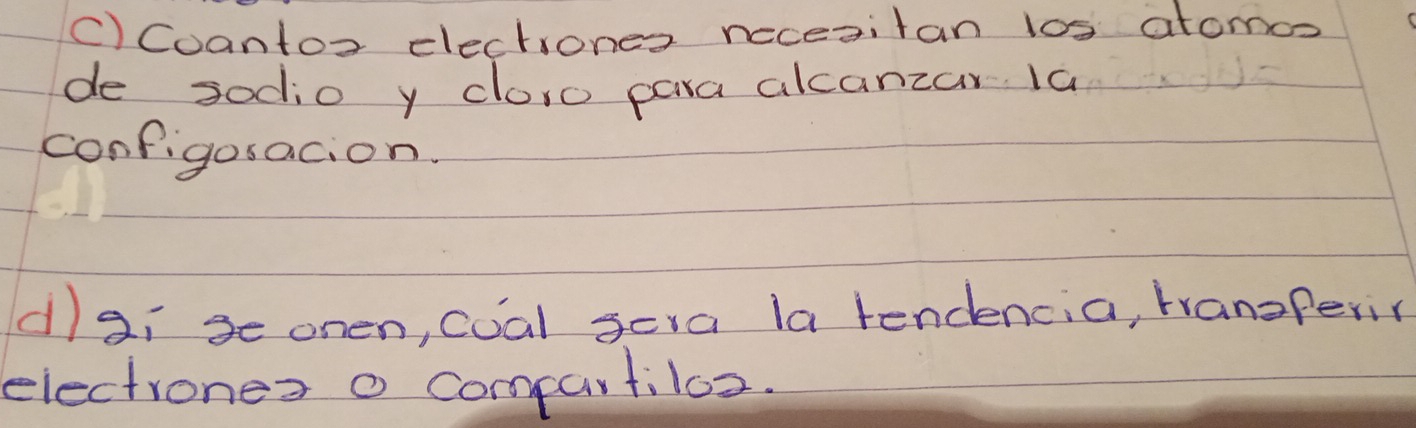 c) Cuantos electrones necesitan los atomos
de sodio y cloro para alcanzar la
configuracion.
d)
d) si se unen, cuál sera la tendencia, transferir
electrones o compartilos.